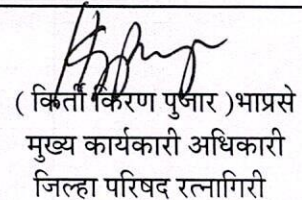 ( किर्ती किरण पुजार )भाप्रसे
मुख्य कार्यकारी अधिकारी
जिल्हा परिषद रत्नागिरी